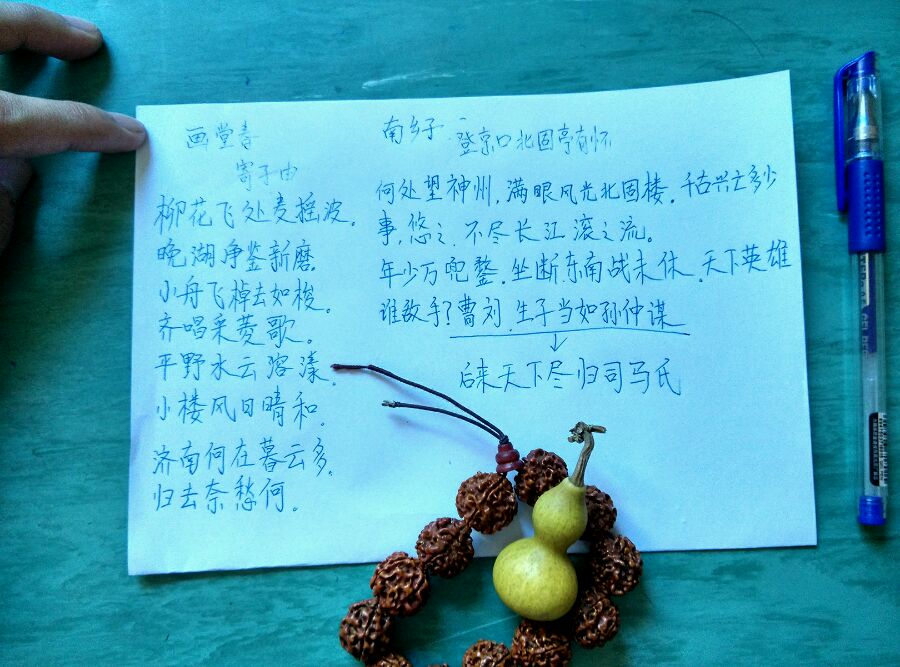 画堂春
寄子由
柳花飞处麦摇波。
晚湖净鉴新磨。
小舟飞棹去如梭。
齐唱采菱歌。
平野水云溶漾。
小楼风日晴和。
济南何在暮云多。
归去奈愁何。
南乡子·登京口北固亭有怀
何处望神州,满眼风光北固楼。千古兴亡多少
事,悠々.不尽长江滚々流。
年少万兜鍪.坐断东南战未休.天下英雄
谁敌手?曹刘.生子当如孙仲谋
后来天下尽归司马氏